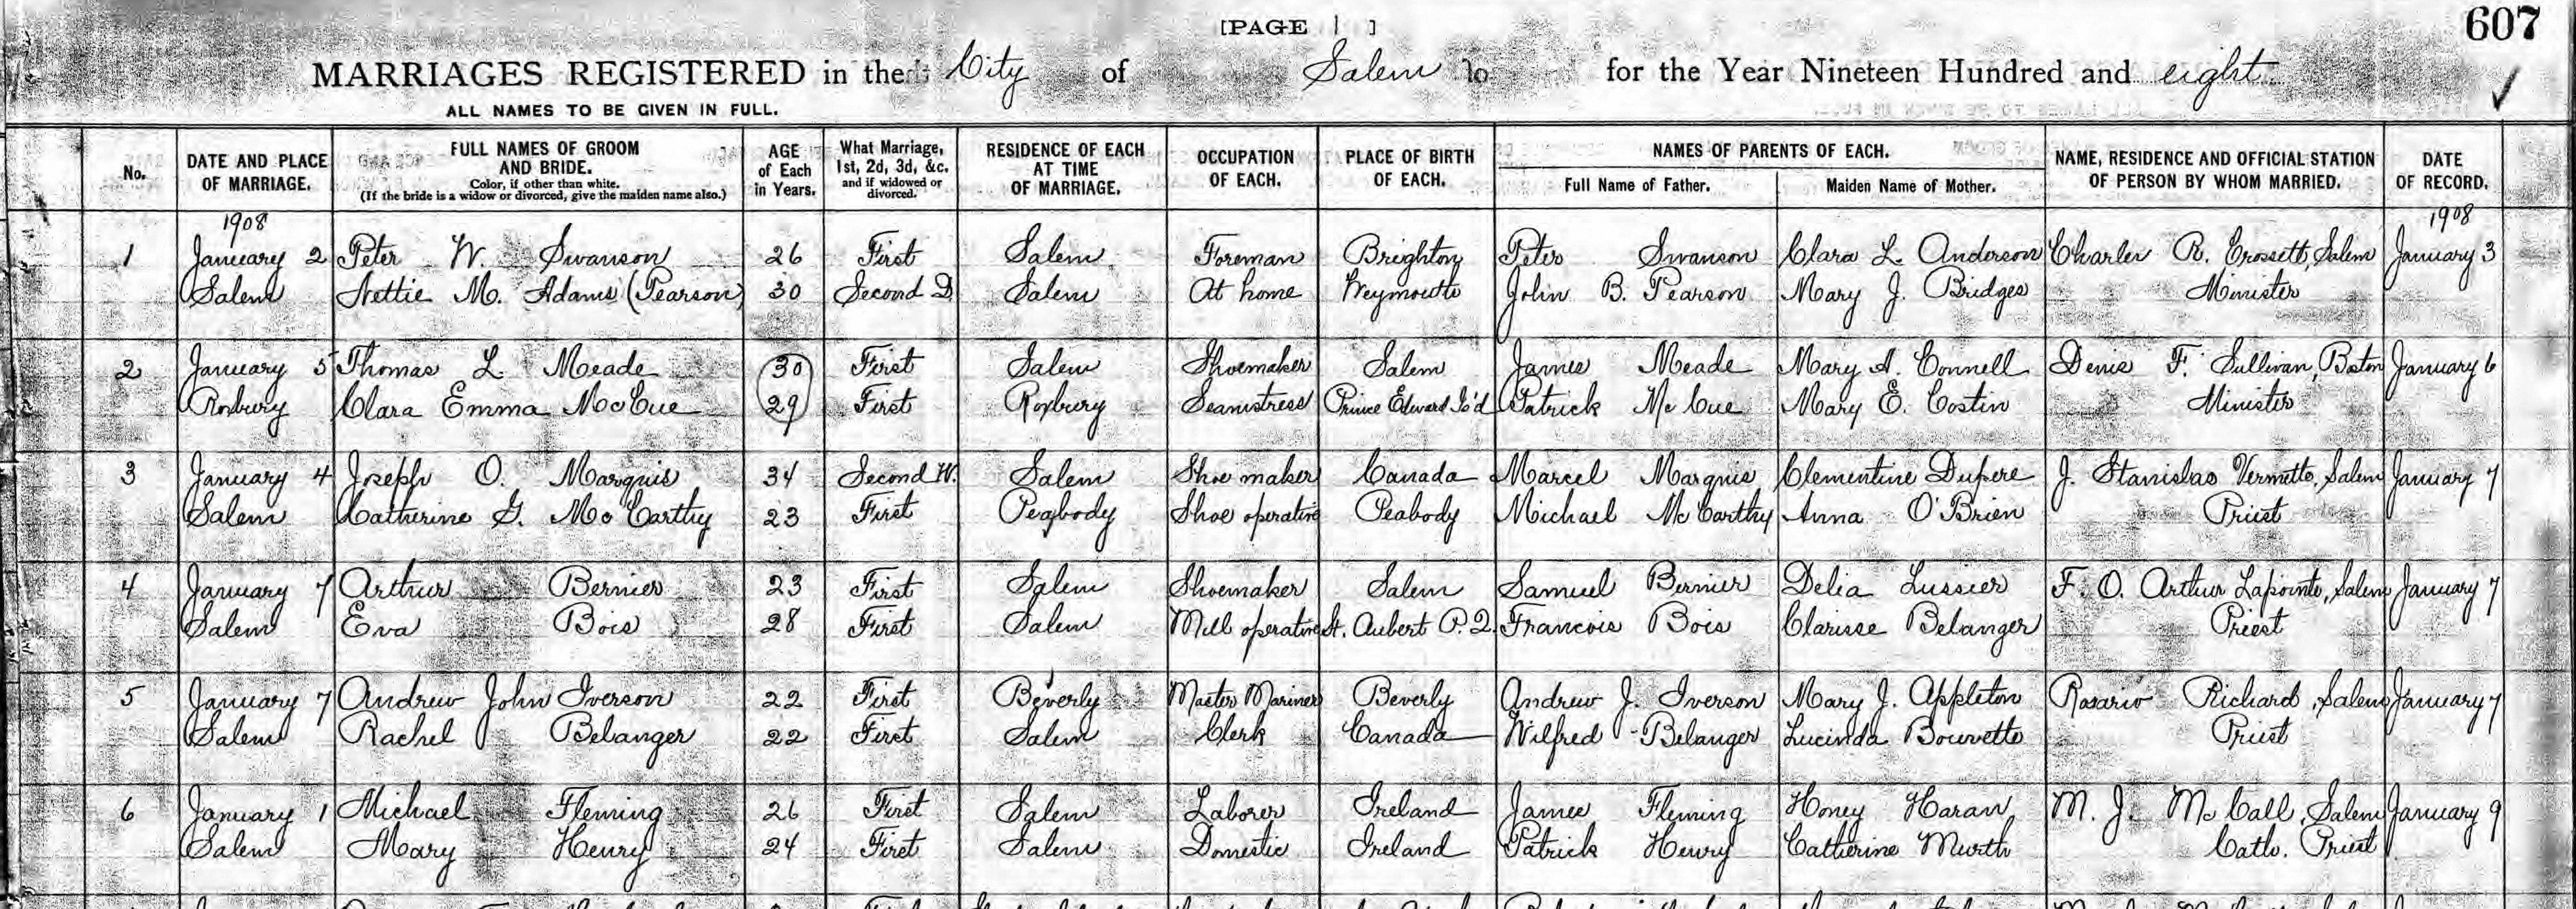 [PAGE 1 ]
607
MARRIAGES REGISTERED in the City of Salem for the Year Nineteen Hundred and eight
ALL NAMES TO BE GIVEN IN FULL.
No. DATE AND PLACE OF MARRIAGE. FULL NAMES OF GROOM AND BRIDE. Color, if other than white. (If the bride is a widow or divorced, give the maiden name also.) AGE of Each in Years. What Marriage, 1st, 2d, 3d, &c. and if widowed or divorced. RESIDENCE OF EACH AT TIME OF MARRIAGE. OCCUPATION OF EACH. PLACE OF BIRTH OF EACH. NAMES OF PARENTS OF EACH. Full Name of Father. Maiden Name of Mother. NAME, RESIDENCE AND OFFICIAL STATION OF PERSON BY WHOM MARRIED. DATE OF RECORD.
1908 1908
1 January 2 Peter W. Swanson 26 First Salem Foreman Brighton Peter Swanson Clara L. Anderson Charles R. Crossett, Salem January 3
Salem Nettie M. Adams (Pearson) 30 Second D Salem At home Weymouth John B. Pearson Mary J. Bridges Minister
2 January 5 Thomas L. Meade 30 First Salem Shoemaker Salem James Meade Mary A. Connell Denis F. Sullivan, Boston January 6
Roxbury Clara Emma McCue 29 First Roxbury Seamstress Prince Edward Is'd Patrick McCue Mary E. Costin Minister
3 January 4 Joseph O. Marquis 34 Second W. Salem Shoe maker Canada Marcel Marquis Clementine Dupere J. Stanislas Vermette, Salem January 7
Salem Katherine G. McCarthy 23 First Peabody Shoe operative Peabody Michael McCarthy Anna O'Brien Priest
4 January 7 Arthur Bernier 23 First Salem Shoemaker Salem Samuel Bernier Delia Lussier F. O. Arthur Lapointe, Salem January 7
Salem Eva Bois 28 First Salem Mill operative St. Aubert P.Q. Francois Bois Clarisse Belanger Priest
5 January 7 Andrew John Iverson 22 First Beverly Master Mariner Beverly Andrew J. Iverson Mary J. Appleton Rosario Richard, Salem January 7
Salem Rachel Belanger 22 First Salem Clerk Canada Wilfred Belanger Lucinda Bouvette Priest
6 January 1 Michael Fleming 26 First Salem Laborer Ireland James Fleming Honey Haran M. J. McCall, Salem January 9
Salem Mary Henry 24 First Salem Domestic Ireland Patrick Henry Catherine Murth Cath. Priest